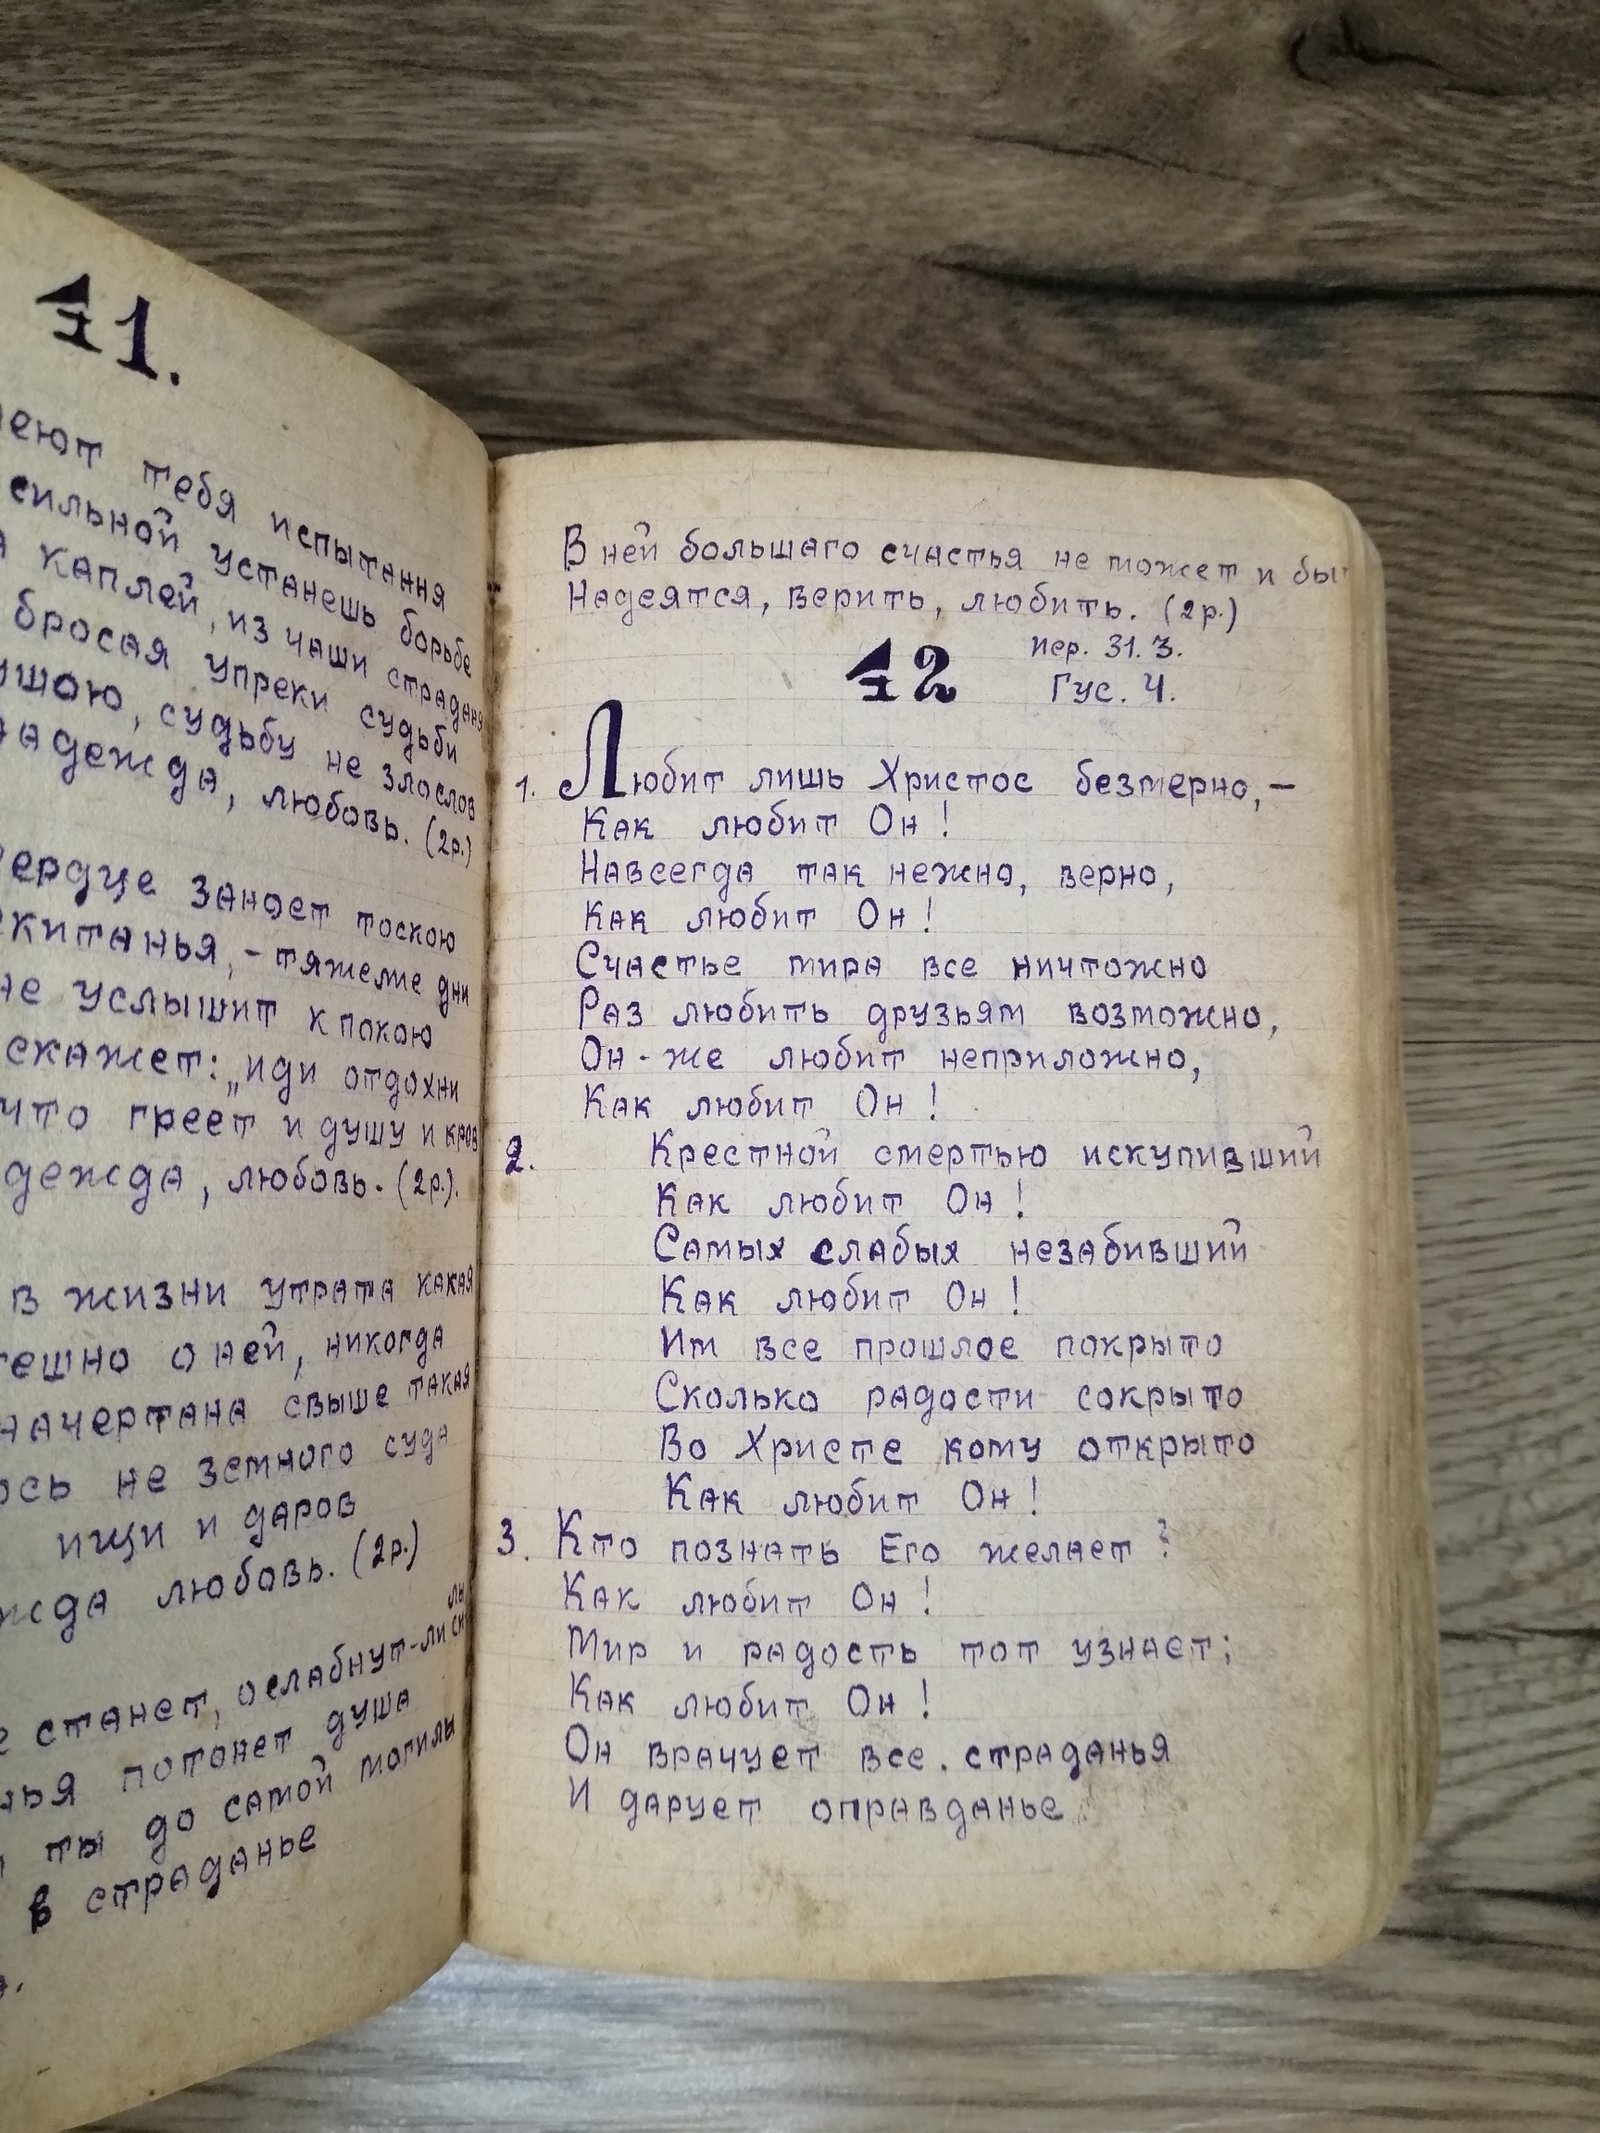 11.
тебя испытання
сильной устанешь борьбе
каплей, из чаши
бросая упреки судьби
судьбу не злослов
надежда, любовь. (2р.)
сердце заноет тоскою
тяжелие дни
не услышит к покою
скажет: „иди отдохни
что греет и душу и
любовь. (2р.).
в жизни утрата какая
о ней, никогда
начертана свыше такая
не земного суда
ищи и даров
любовь. (2р.)
станет, ослабнут-ли
потонет душа
ты до самой могилы
в страданье
В ней большаго счастья не может и
Надеятся, верить, любить. (2р.)
12
Иер. 31. 3.
Гус. 4.
1. Любит лишь Христос безмерно,-
Как любит Он!
Навсегда так нежно, верно,
Как любит Он!
Счастье мира все ничтожно
Раз любить друзьям возможно,
Он-же любит неприложно,
Как любит Он!
2. Крестной смертью искупивший
Как любит Он!
Самых слабых незабивший
Как любит Он!
Им все прошлое покрыто
Сколько радости сокрыто
Во Христе кому открыто
Как любит Он!
3. Кто познать Его желает?
Как любит Он!
Мир и радость тот узнает;
Как любит Он!
Он врачует все. страданья
И дарует оправданье